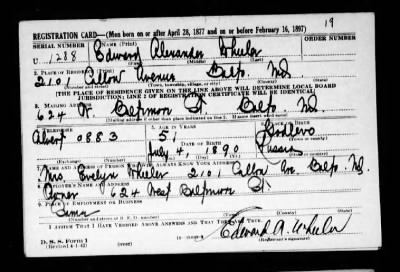 19
REGISTRATION CARD—(Men born on or after April 28, 1877 and on or before February 16, 1897)
SERIAL NUMBER 1. NAME (Print)
U 1288 Edward Alexander Wheeler
(First) (Middle) (Last)
2. PLACE OF RESIDENCE (Print)
2101 Avenue Balto. Md.
(Number and street) (Town, township, village, or city) (County) (State)
[THE PLACE OF RESIDENCE GIVEN ON THE LINE ABOVE WILL DETERMINE LOCAL BOARD
JURISDICTION; LINE 2 OF REGISTRATION CERTIFICATE WILL BE IDENTICAL]
3. MAILING ADDRESS
624 W. Baltimore St. Balto. Md
[Mailing address if other than place indicated on line 2. If same insert word same]
4. TELEPHONE 5. AGE IN YEARS 6. PLACE OF BIRTH
0883 51
DATE OF BIRTH
July 4 1890 Russia
(Mo.) (Day) (Yr.)
7. NAME AND ADDRESS OF PERSON WHO WILL ALWAYS KNOW YOUR ADDRESS
Mrs. Evelyn Wheeler 2101 Ave Balto. Md.
8. EMPLOYER'S NAME AND ADDRESS
Owner 624 West Baltimore St.
9. PLACE OF EMPLOYMENT OR BUSINESS
Same
(Number and street or R. F. D. number) (Town) (County) (State)
I AFFIRM THAT I HAVE VERIFIED ABOVE ANSWERS AND THAT THEY ARE TRUE.
D. S. S. Form 1
(Revised 4-1-42) (over)
Edward A. Wheeler